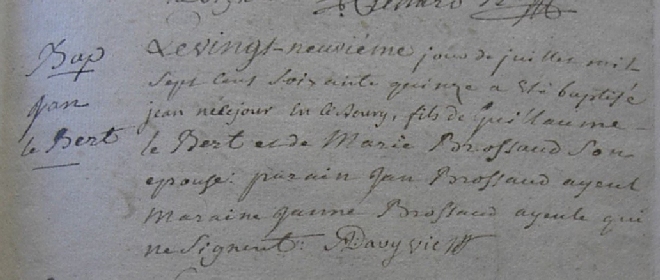 Bap
jan
le Bert
Le vingt-neuvième jour de juillet mil
sept cens soixante quinze a été baptisé
jean né le jour en ce bourg, fils de guillaume
le Bert et de Marie Brossaud son
epouse: parain jan Brossaud ayeul
Maraine janne Brossaud ayeule qui
ne signent: Davy vic